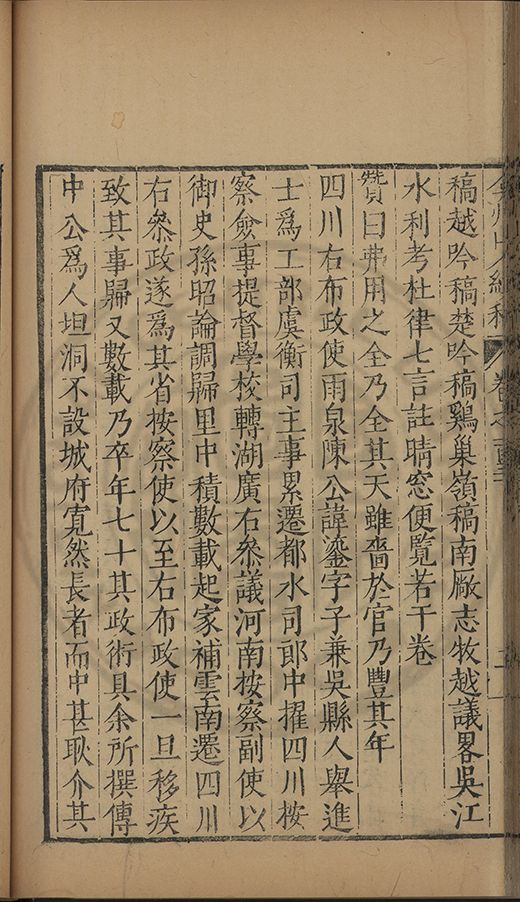 弇州山人續稿 卷之一百五
稿越吟稿楚吟稿鷄巢嶺稿南厰志牧越議畧吳江
水利考杜律七言註晴窓便覽若干卷
贊曰弗用之全乃全其天雖嗇於官乃豐其年
四川右布政使雨泉陳公諱鎏字子兼吳縣人舉進
士爲工部虞衡司主事累遷都水司郎中擢四川按
察僉事提督學校轉湖廣右叅議河南按察副使以
御史孫昭論調歸里中積數載起家補雲南遷四川
右叅政遂爲其省按察使以至右布政使一旦移疾
致其事歸又數載乃卒年七十其政術具余所撰傳
中公爲人坦洞不設城府寬然長者而中甚耿介其